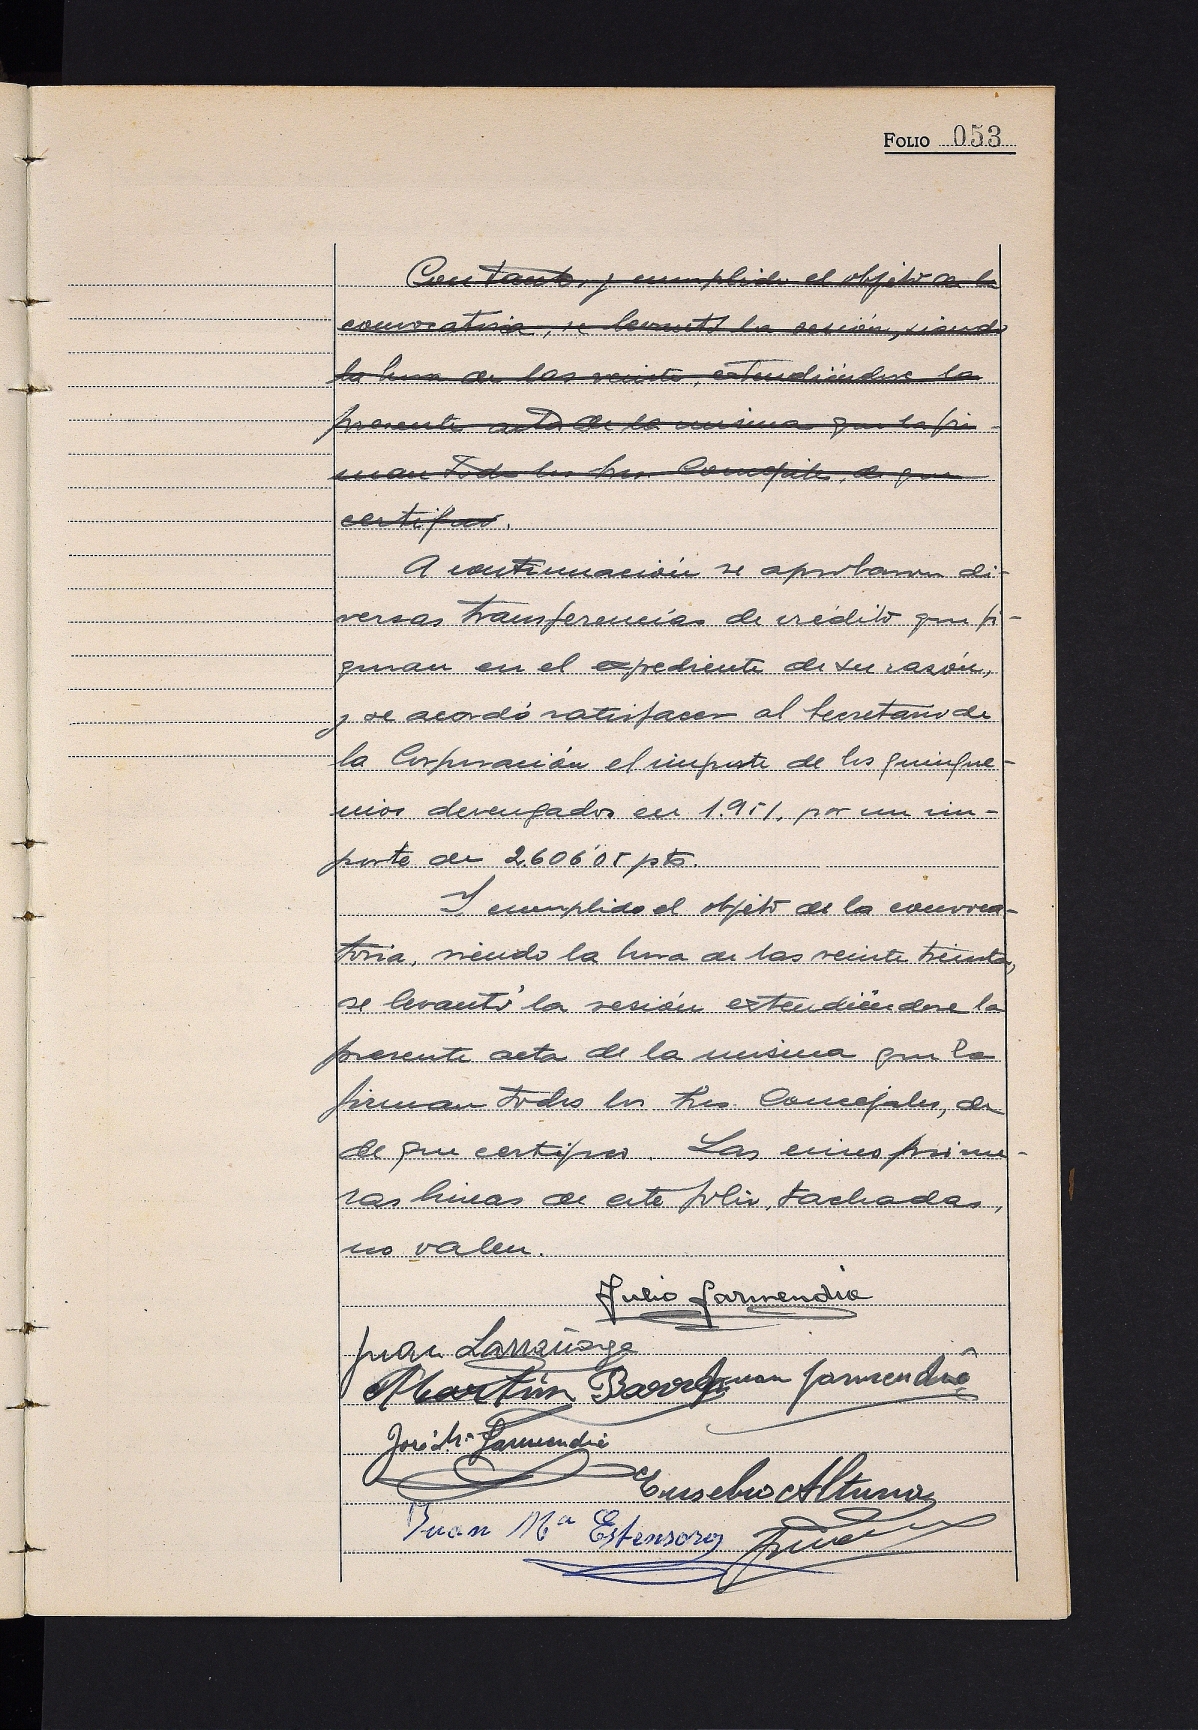 FOLIO 053
Con tanto, y cumplido el objeto de la
convocatoria, se levantó la sesión, siendo
la hora de las veinte, extendiéndose la
presente acta de la misma que la fir-
man todos los Sres. Concejales, de que
certifico.
A continuación se aprobaron di-
versas transferencias de crédito que fi-
guran en el expediente de su razón,
y se acordó satisfacer al Secretario de
la Corporación el importe de los quinque-
nios devengados en 1.951, por un im-
porte de 2.606'05 pts.
Y cumplido el objeto de la convoca-
toria, siendo la hora de las veinte treinta,
se levantó la sesión extendiéndose la
presente acta de la misma que la
firman todos los Sres. Concejales, de
de que certifico. Las cinco prime-
ras lineas de este folio, tachadas,
no valen.
Julio Garmendia
Juan Larrañaga
Martín Barre Juan Garmendia
José Mª Garmendia
Eusebio Altuna
Juan Mª Estensoro